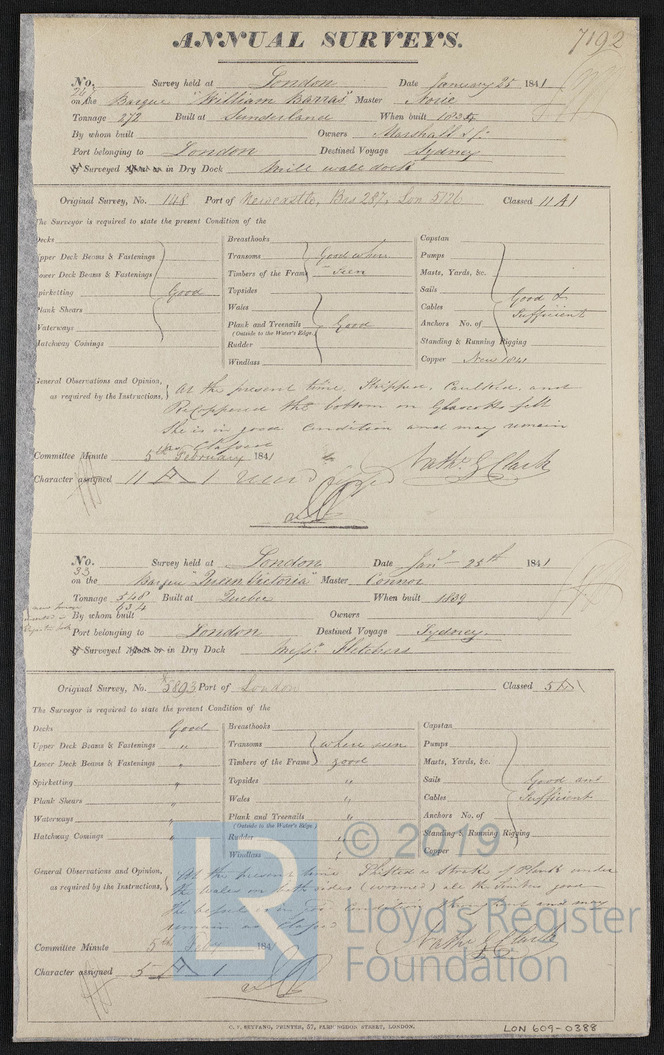 ANNUAL SURVEYS.
7192
No. Survey held at London Date January 25 1841
on the Barque "William Barras" Master Norie
Tonnage 272 Built at Sunderland When built
By whom built Owners Marshall &
Port belonging to London Destined Voyage Sydney
Surveyed in Dry Dock Mill wall dock
Original Survey, No. 148 Port of Newcastle, Bas 287, Lon 5126 Classed 11 A 1
The Surveyor is required to state the present Condition of the
Decks
Upper Deck Beams & Fastenings
Lower Deck Beams & Fastenings
Spirketting Good
Plank Shears
Waterways
Hatchway Comings
Breasthooks
Transoms Good when
Timbers of the Frame seen
Topsides
Wales
Plank and Treenails Good
(Outside to the Water's Edge.)
Rudder
Windlass
Capstan
Pumps
Masts, Yards, &c.
Sails Good &
Cables Sufficient
Anchors No. of
Standing & Running Rigging
Copper New 1841
General Observations and Opinion, At the present time, Stripped, Caulked, and
as required by the Instructions, Recoppered the bottom on felt
She is in good condition and may remain
as Classed
Committee Minute 5th February 1841
Character assigned 11 A 1
Nathl. G Clark
No. Survey held at London Date Jany 25th 1841
33
on the Barque "Queen Victoria" Master Connor
Tonnage 548 Built at Quebec When built 1839
634
By whom built Owners
Port belonging to London Destined Voyage Sydney
Surveyed in Dry Dock Messrs Fletchers
Original Survey, No. 5893 Port of London Classed 5 A 1
The Surveyor is required to state the present Condition of the
Decks Good
Upper Deck Beams & Fastenings "
Lower Deck Beams & Fastenings "
Spirketting "
Plank Shears "
Waterways "
Hatchway Comings "
Breasthooks
Transoms where seen
Timbers of the Frame good
Topsides "
Wales "
Plank and Treenails "
(Outside to the Water's Edge.)
Rudder "
Windlass "
Capstan
Pumps
Masts, Yards, &c.
Sails Good and
Cables Sufficient
Anchors No. of
Standing & Running Rigging
Copper
General Observations and Opinion, At the present time Shifted a Strake of Plank under
as required by the Instructions, the Wales on both sides (wormed) all the timbers good
the Vessel is in condition and may
remain as Classed
Committee Minute 5th Feby 184
Character assigned 5 A 1
Nathl. G Clark
© 2019
Lloyd's Register
Foundation
LR
LON 609-0388